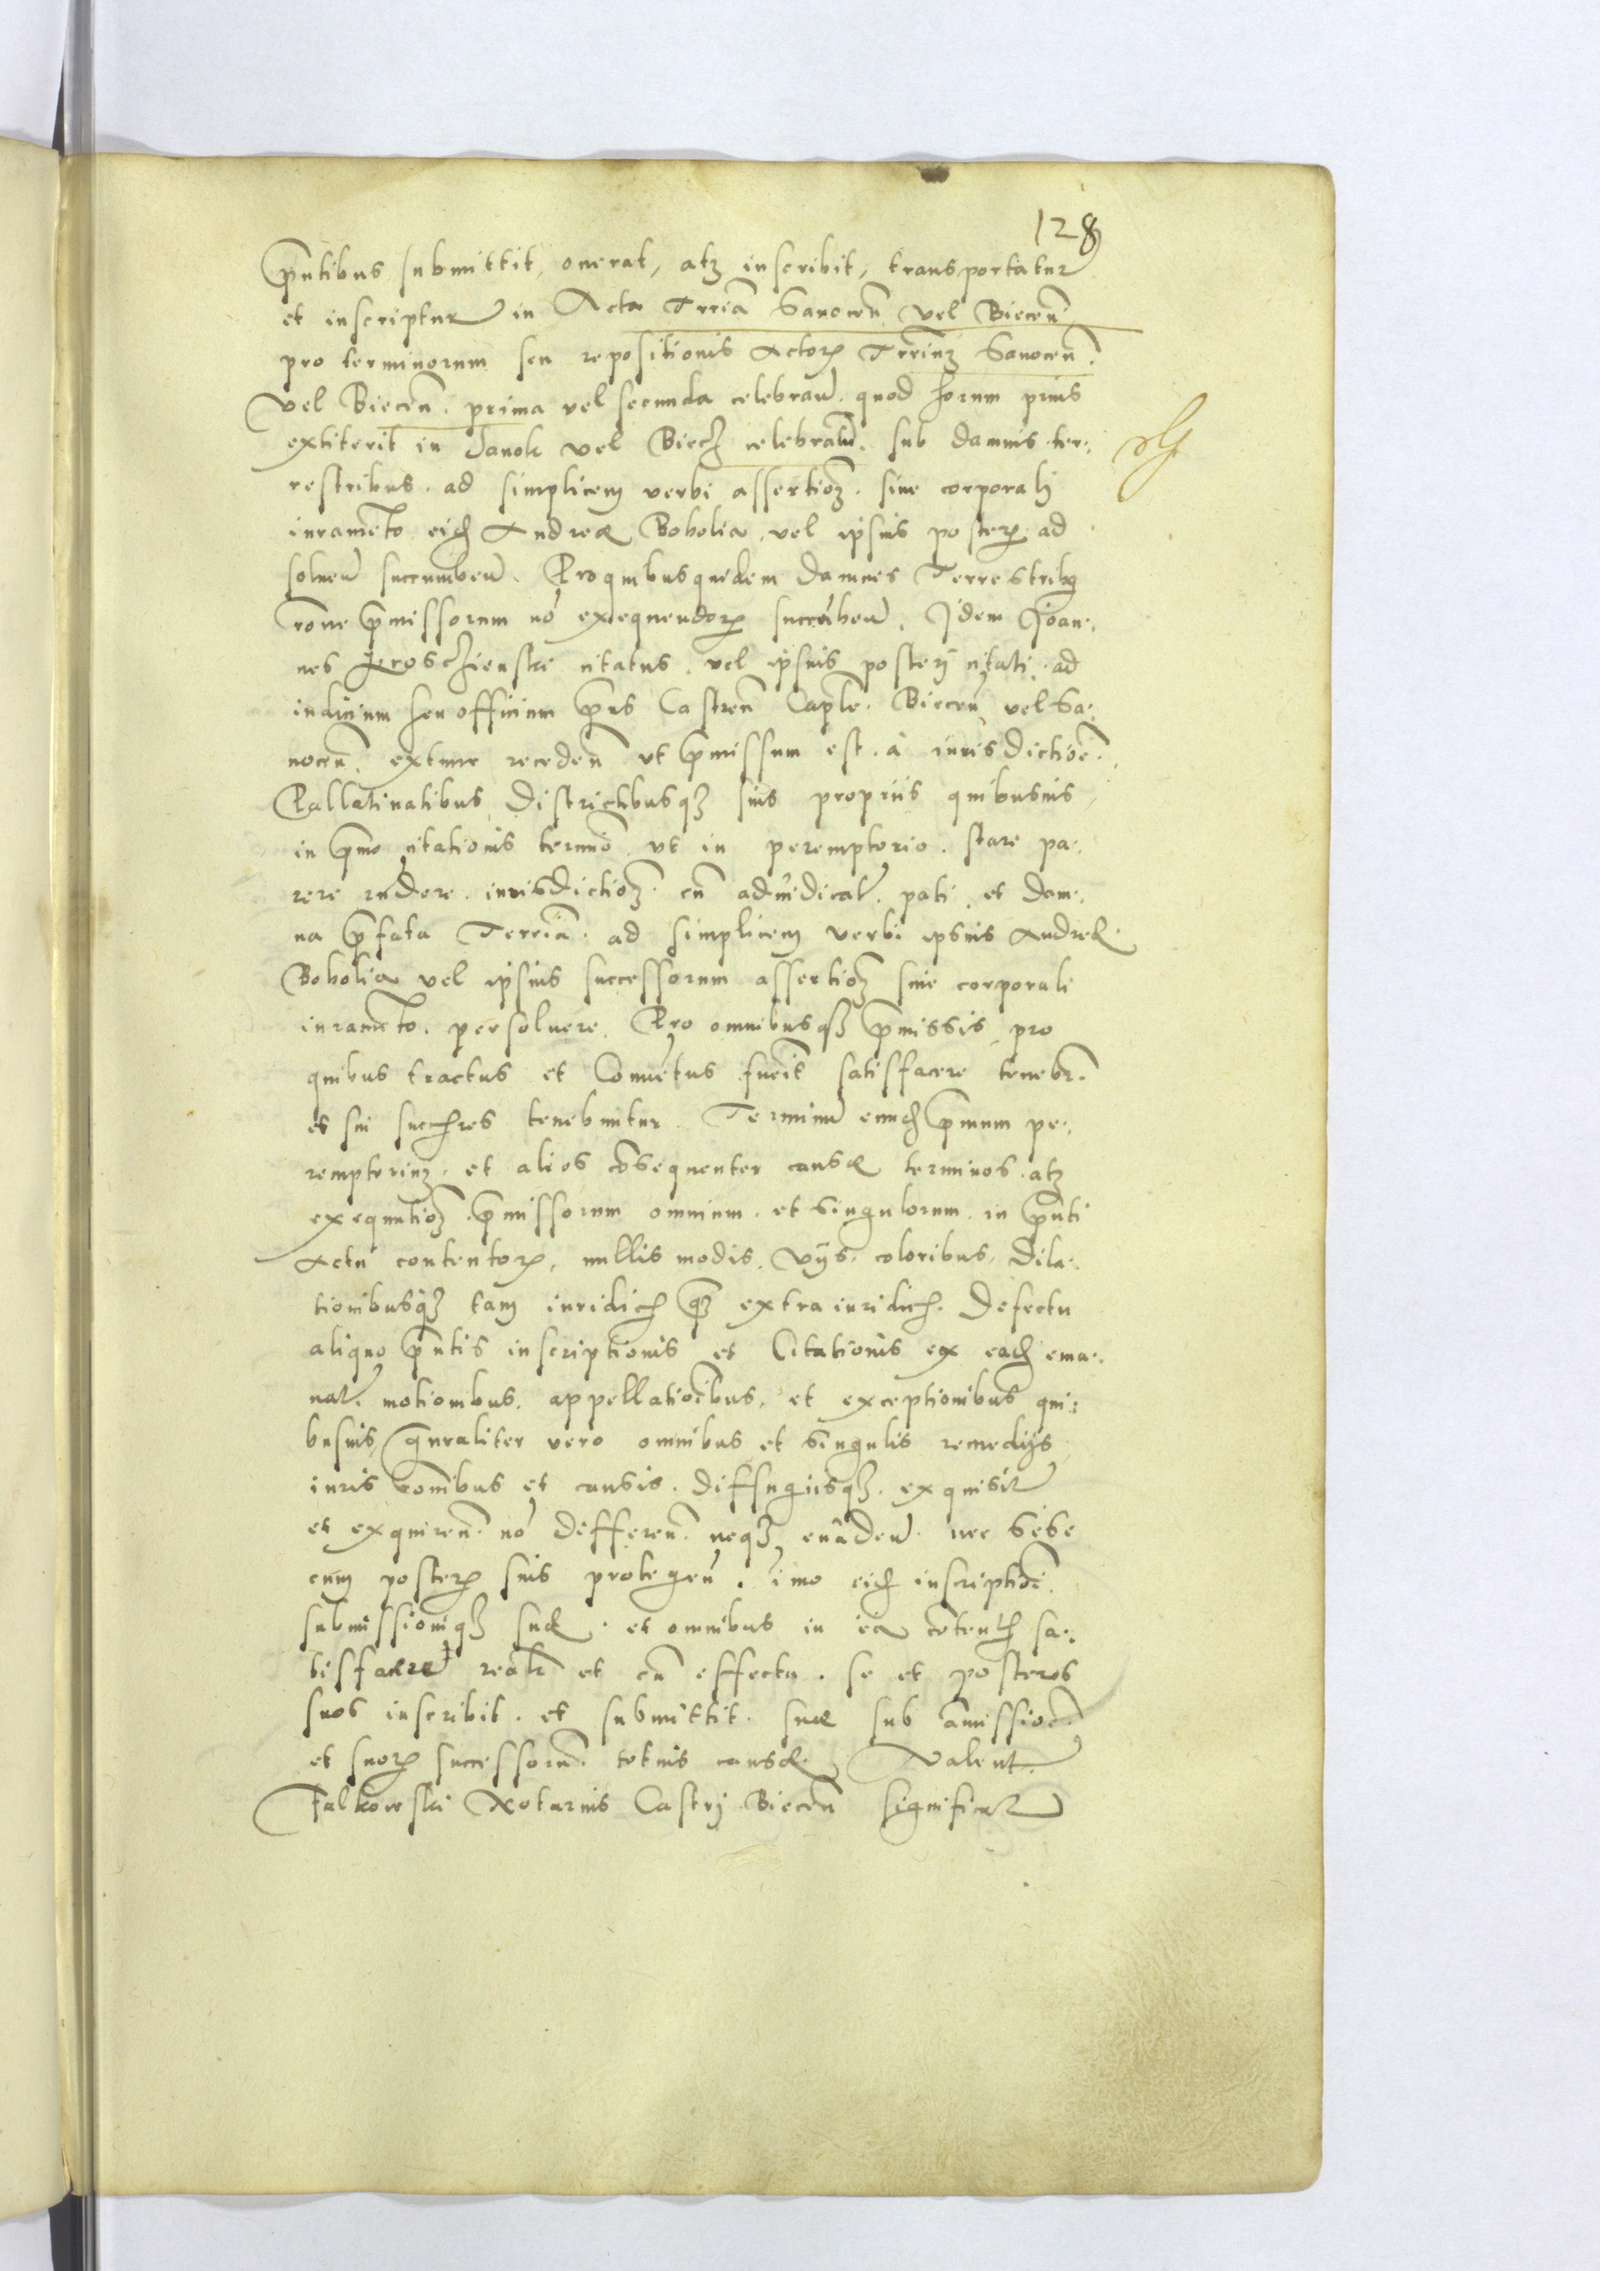 128
pñtibus submittit, onerat, atq inscribit, transportatur
et inscriptur in Acta Trria Sanocen vel Biecen
pro terminorum seu repositionis Actor Trrium Sanocen.
vel Biecen. prima vel secunda celebran. quod horum prius
extiterit in Sanok vel Biecz celebratu. sub damnis ter:
restribus. ad simplicem verbi assertioz. sine corporali
iurameto eid Andreæ Boboliæ, vel ipsius poster ad
soluen succumben. Pro quibusquidem damnis Terrestribq
rone pmissorum no exequendor succuben. Idem Joan:
nes Kroschienski citatus. vel ipsius posteri citati. ad
iudicium seu officium pns Castren Caple. Biecen vel Sa:
nocen. extunc receden ut pmissum est. à iurisdictioe.
Pallatinatibus, Districtibusqz suis propriis quibusuis
in pmo citationis termio ut in peremptorio. stare pa:
rere rndere. iurisdictioz. cu adiudicat. pati et dam:
na pfata Terria. ad simplicem verbi ipsius Andreæ
Boboliæ vel ipsius successorum assertioz sine corporali
iurameto. persoluere. Pro omnibusqz pmissis pro
quibus tractus et Conuetus fuerit satisfacere tenebr.
et sui succres tenebuntur. Terminu eund pmum pe:
remptorium. et alios cosequenter causæ terminos. atq
exequutioz. pmissorum omnium. et singulorum. in pnti
Actu contentor, nullis modis, vijs. coloribus, dila:
tionibusqz tam iuridic qz extraiuridic. Defectu
aliquo pntis inscriptionis et Citationis ex ead ema:
nat. motionibus, appellatioibus, et exceptionibus qui:
busuis, gnraliter vero omnibus et singulis remedijs
iuris ronibus et causis. diffugiisqz. exquisit
et exquiren. no differen. neqz euaden. nec sese
cum poster suis protegen. imo eid inscriptioi.
submissioniqz suæ. et omnibus in ea coten sa:
tisfacere realr et cu effectu. se et posteros
suos inscribit. et submittit. suæ sub amissioe.
et suor successoru. totius causæ. Valent.
Falkowski Notarius Castri Biecen significat